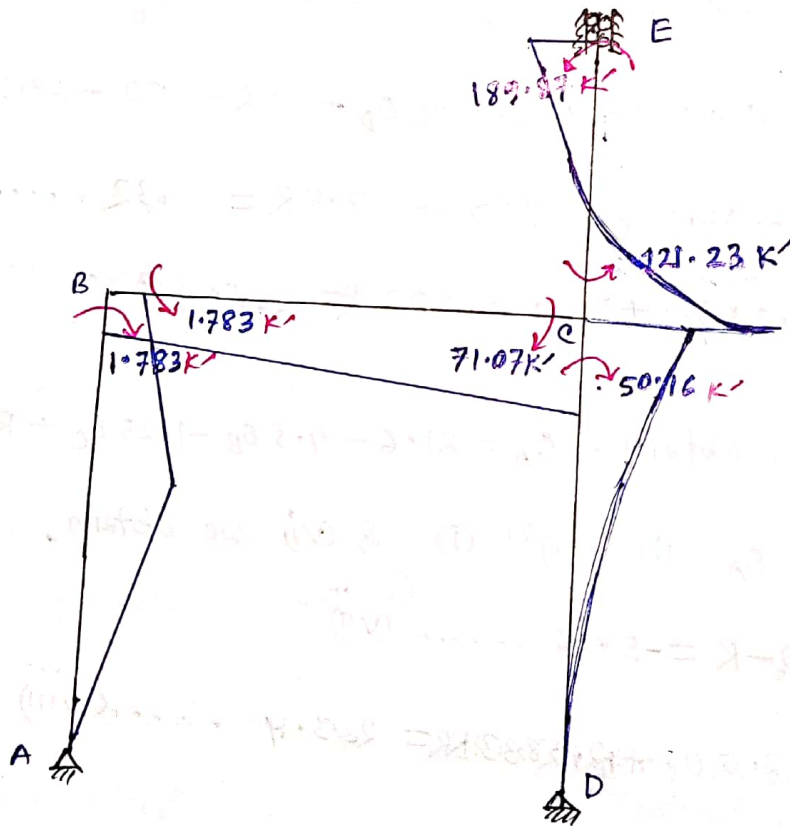 E
189.87 K'
121.23 K'
B
1.783 K'
C
1.783 K'
71.07 K'
50.16 K'
A
D